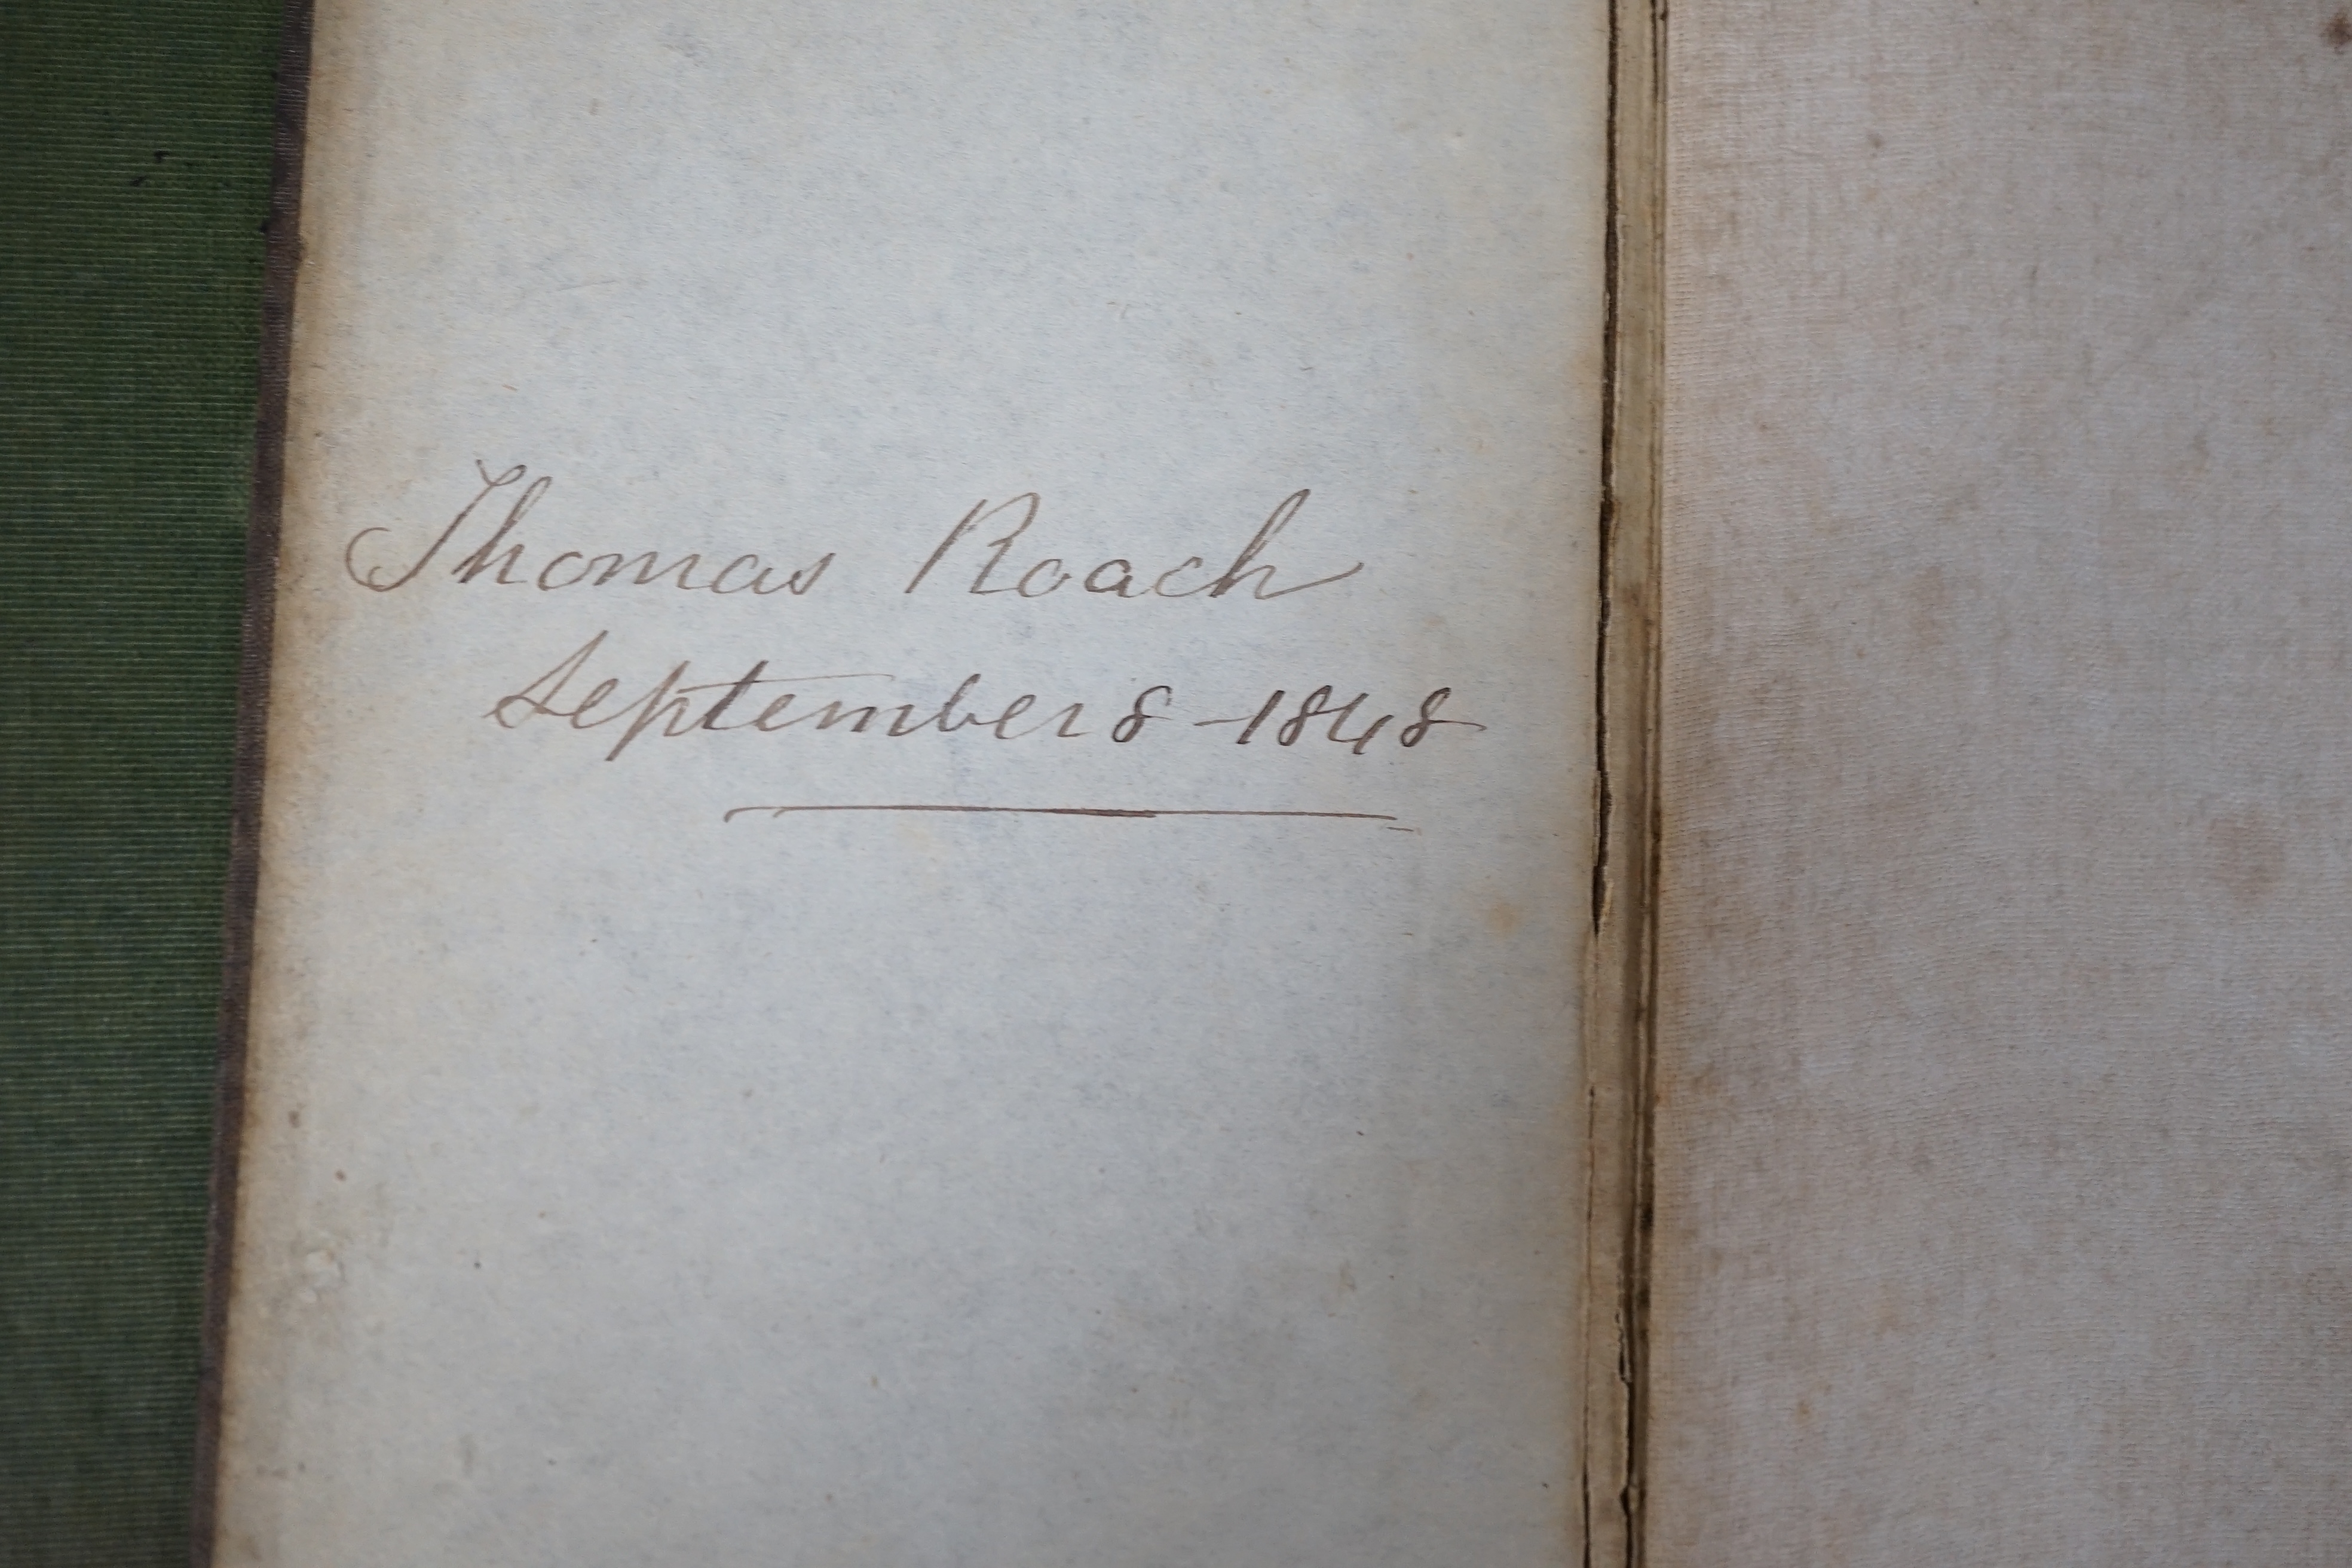 Thomas Roach
September 8 - 1848